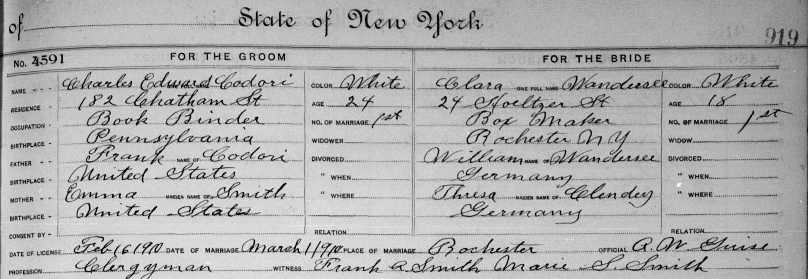 of State of New York 919
No. 4591 FOR THE GROOM FOR THE BRIDE
NAME Charles Edward Codori COLOR White Clara ONE FULL NAME Wandersee COLOR White
RESIDENCE 182 Chatham St AGE 24 24 Hoeltzer St AGE 18
OCCUPATION Book Binder NO. OF MARRIAGE 1st Box Maker NO. OF MARRIAGE 1st
BIRTHPLACE Pennsylvania WIDOWER Rochester N Y WIDOW
FATHER Frank NAME OF Codori DIVORCED William NAME OF Wandersee DIVORCED
BIRTHPLACE United States " WHEN Germany " WHEN
MOTHER Emma MAIDEN NAME OF Smith " WHERE Thresa MAIDEN NAME OF Clendey " WHERE
BIRTHPLACE United States Germany
CONSENT BY RELATION RELATION
DATE OF LICENSE Feb 16 1910 DATE OF MARRIAGE March 1 1910 PLACE OF MARRIAGE Rochester OFFICIAL A. W.
PROFESSION Clergyman WITNESS Frank A. Smith Marie S. Smith